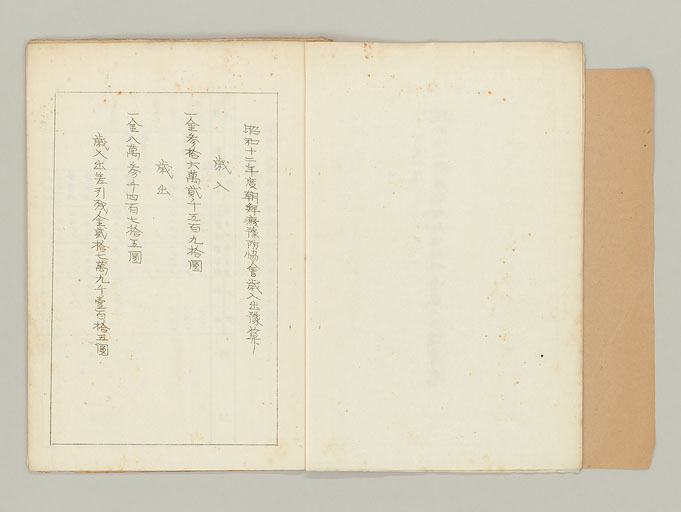 昭和十二年度朝鮮癩豫防協會歲入出豫算
歲入
一金參拾六萬貳千五百九拾圓
歲出
一金八萬參千四百七拾五圓
歲入出差引殘金貳拾七萬九千壹百拾五圓